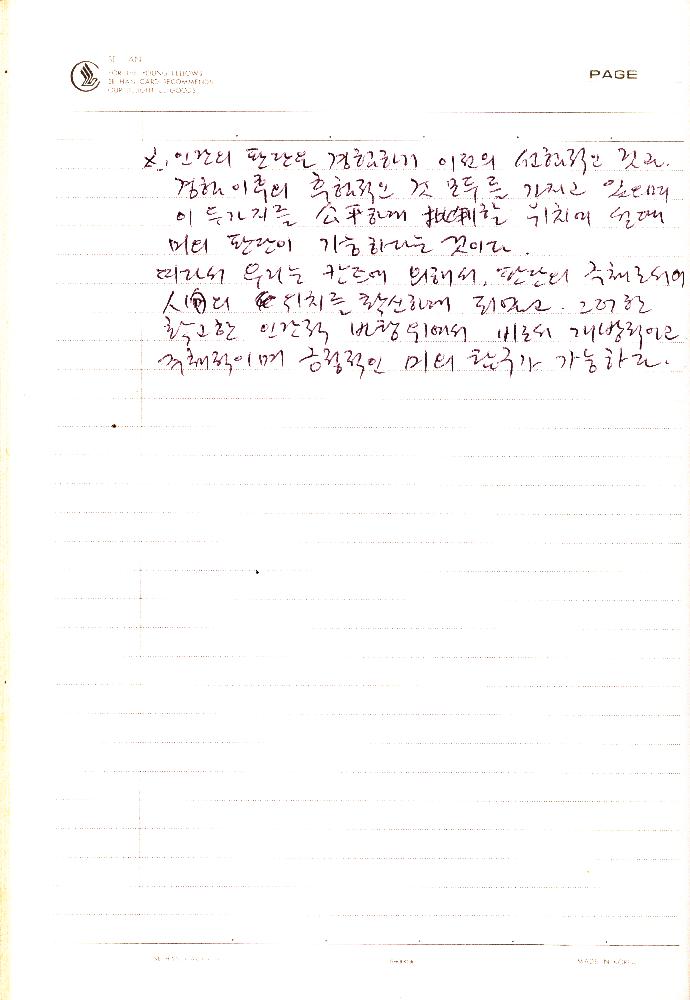 SE HAN
FOR THE YOUNG FELLOWS
SE HAN CARD RECOMMENDS
OUR DELIGHTFUL GOODS
PAGE
2. 인간의 판단은 경험하기 이전의 선험적인 것과.
경험 이후의 후험적인 것 모두를 가지고 있으며
이 두가지를 公平하게 批判할 위치에 설때
미의 판단이 가능하다는 것이다.
따라서 우리는 칸트에 의해서, 판단의 주체로서의
人間의 위치를 확신하게 되었고. 그러한
확고한 인간적 바탕위에서 비로서 개방적이고
주체적이며 긍정적인 미의 탐구가 가능하다.
MADE IN KOREA